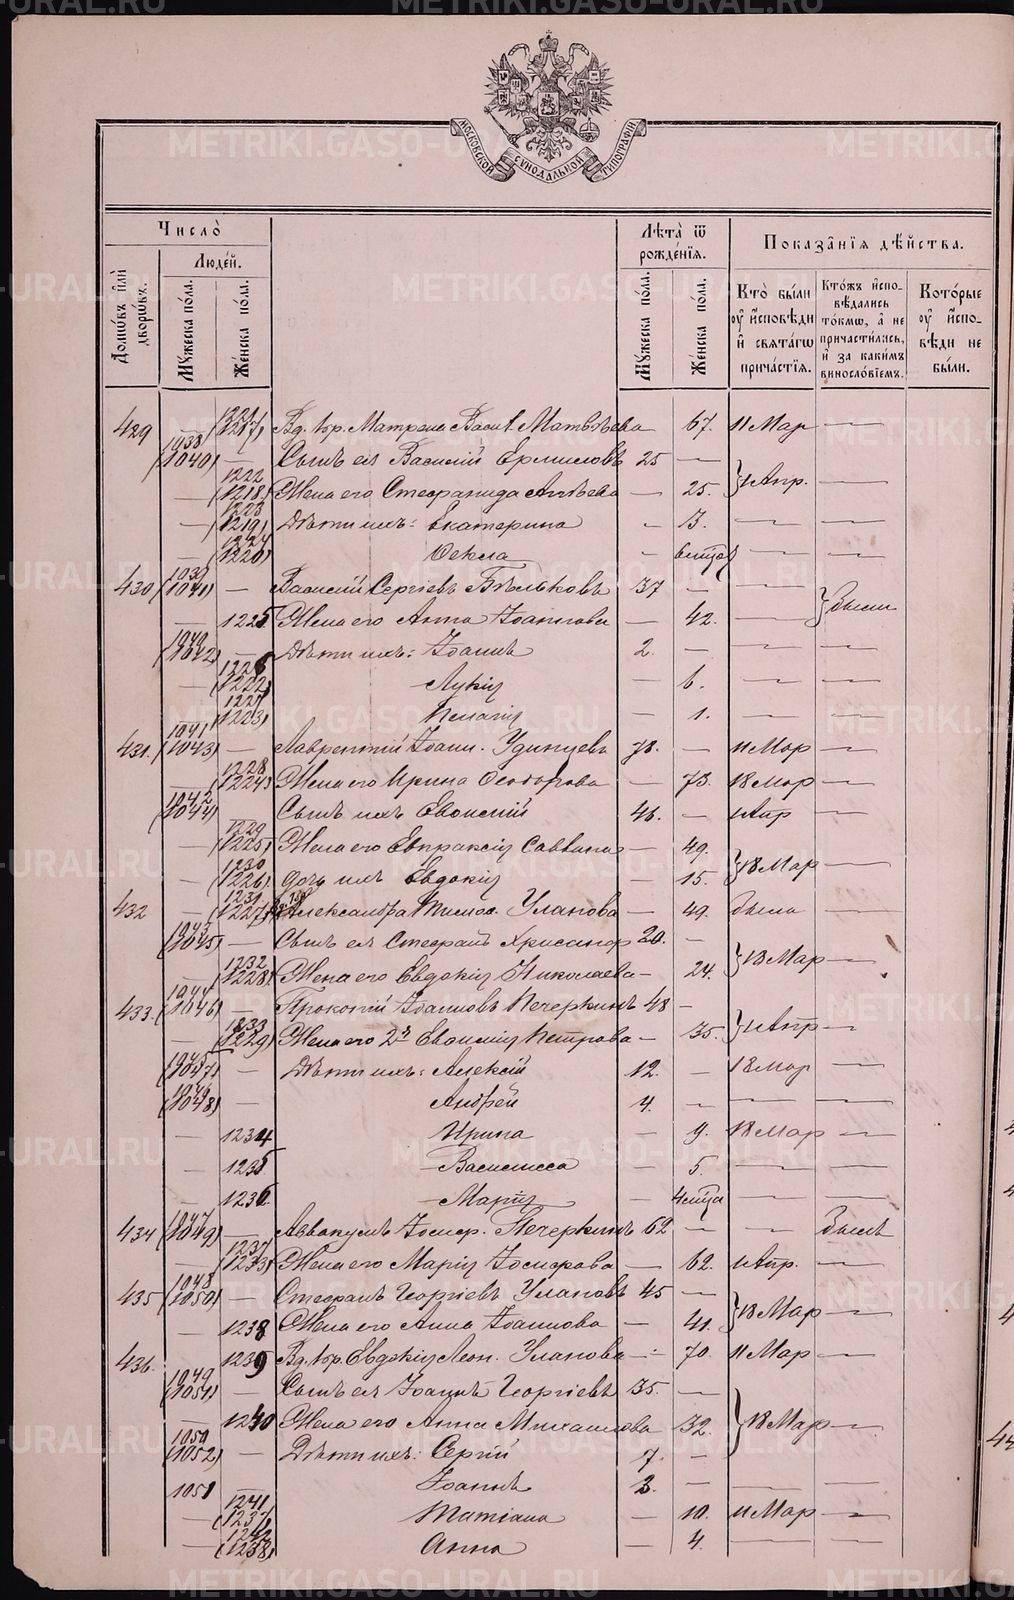 МОСКОВСКОЙ СѴНОДАЛЬНОЙ ТИПОГРАФІИ
Число̀
Лѣта̀ ѿ рожде́нїѧ.
Показа̑нїѧ дѣ́йства.
Домѡ́въ и҆лѝ дворѡ́въ.
Люде́й.
Мꙋ́жеска по́ла.
Же́нска по́ла.
Мꙋ́жеска по́ла.
Же́нска по́ла.
Кто̀ бы́ли ᲂу҆ и҆сповѣ́ди и҆ свѧта́гѡ прича́стїѧ.
Кто́жъ и҆сповѣ́дались то́кмѡ, а҆ не причасти́лись, и҆ за каки́мъ винословїемъ.
Кото́рые ᲂу҆ и҆сповѣ́ди не бы́ли.
429 — 1221 (1217) Вд. кр. Матрена Васил. Матвѣева 67. 11 Мар —
1038 (1040) — Сынъ ея Василій Ермиловъ 25 —
— 1222 (1218) Жена его Стефанида Алѣева — 25. } 1 Апр. —
— 1223 (1219) Дѣти ихъ: Екатерина — 3. — —
— 1224 (1220) Ѳекла — 6 мѣся — —
430 1039 (1041) — Василій Сергіевъ Бѣльковъ 37 — —
— 1225 Жена его Анна Іоаннова — 42. — } Были
1040 (1042) — Дѣти ихъ: Іоаннъ 2. — — —
— 1226 (1222) Лукія — 6. — —
— 1227 (1223) Пелагія — 1. — —
431. 1041 (1043) — Лаврентій Іоанн. Удинцевъ 78. — 11 Мар —
— 1228 (1224) Жена его Ирина Ѳеодорова — 73. 18 Мар —
1042 (1044) Сынъ ихъ Евѳимій 46. — 1 Апр —
— 1229 (1225) Жена его Евпраксія Саввина — 49.
— 1230 (1226) дочь ихъ Евдокія — 15. } 18 Мар —
432 — 1231 (1227) Александра Тимоѳ. Уланова — 49. была —
1043 (1045) — Сынъ ея Стефанъ Хрисанѳор 20. —
— 1232 (1228) Жена его Евдокія Николаева — 24. } 18 Мар —
433. 1044 (1046) — Прокопій Іоанновъ Печеркинъ 48 —
— 1233 (1229) Жена его 2я Евѳимія Петрова — 35. } 1 Апр —
1045 (1047) — Дѣти ихъ: Алексій 12. — 18 Мар —
1046 (1048) — Андрей 4. — — —
— 1234 Ирина — 9. 18 Мар —
— 1235 Василисса — 5. — —
— 1236 Марія — 4 мѣся — —
434 1047 (1049) — Аввакумъ Іосиф. Печеркинъ 62 — — былъ
— 1237 (1233) Жена его Марія Іосифова — 62. 1 Апр. —
435 1048 (1050) — Стефанъ Георгіевъ Улановъ 45 —
— 1238 Жена его Анна Іоаннова — 41. } 18 Мар —
436. 1239 Вд. кр. Евдокія Леон. Уланова — 70. 11 Мар —
1049 (1051) — Сынъ ея Іоаннъ Георгіевъ 35. —
— 1240 Жена его Анна Михаилова 32. } 18 Мар —
1050 (1052) — Дѣти ихъ: Сергій 7. —
1051 — Іоаннъ 3. — — —
— 1241 (1237) Татіана — 10. 11 Мар —
— 1242 (1238) Анна — 4. — —